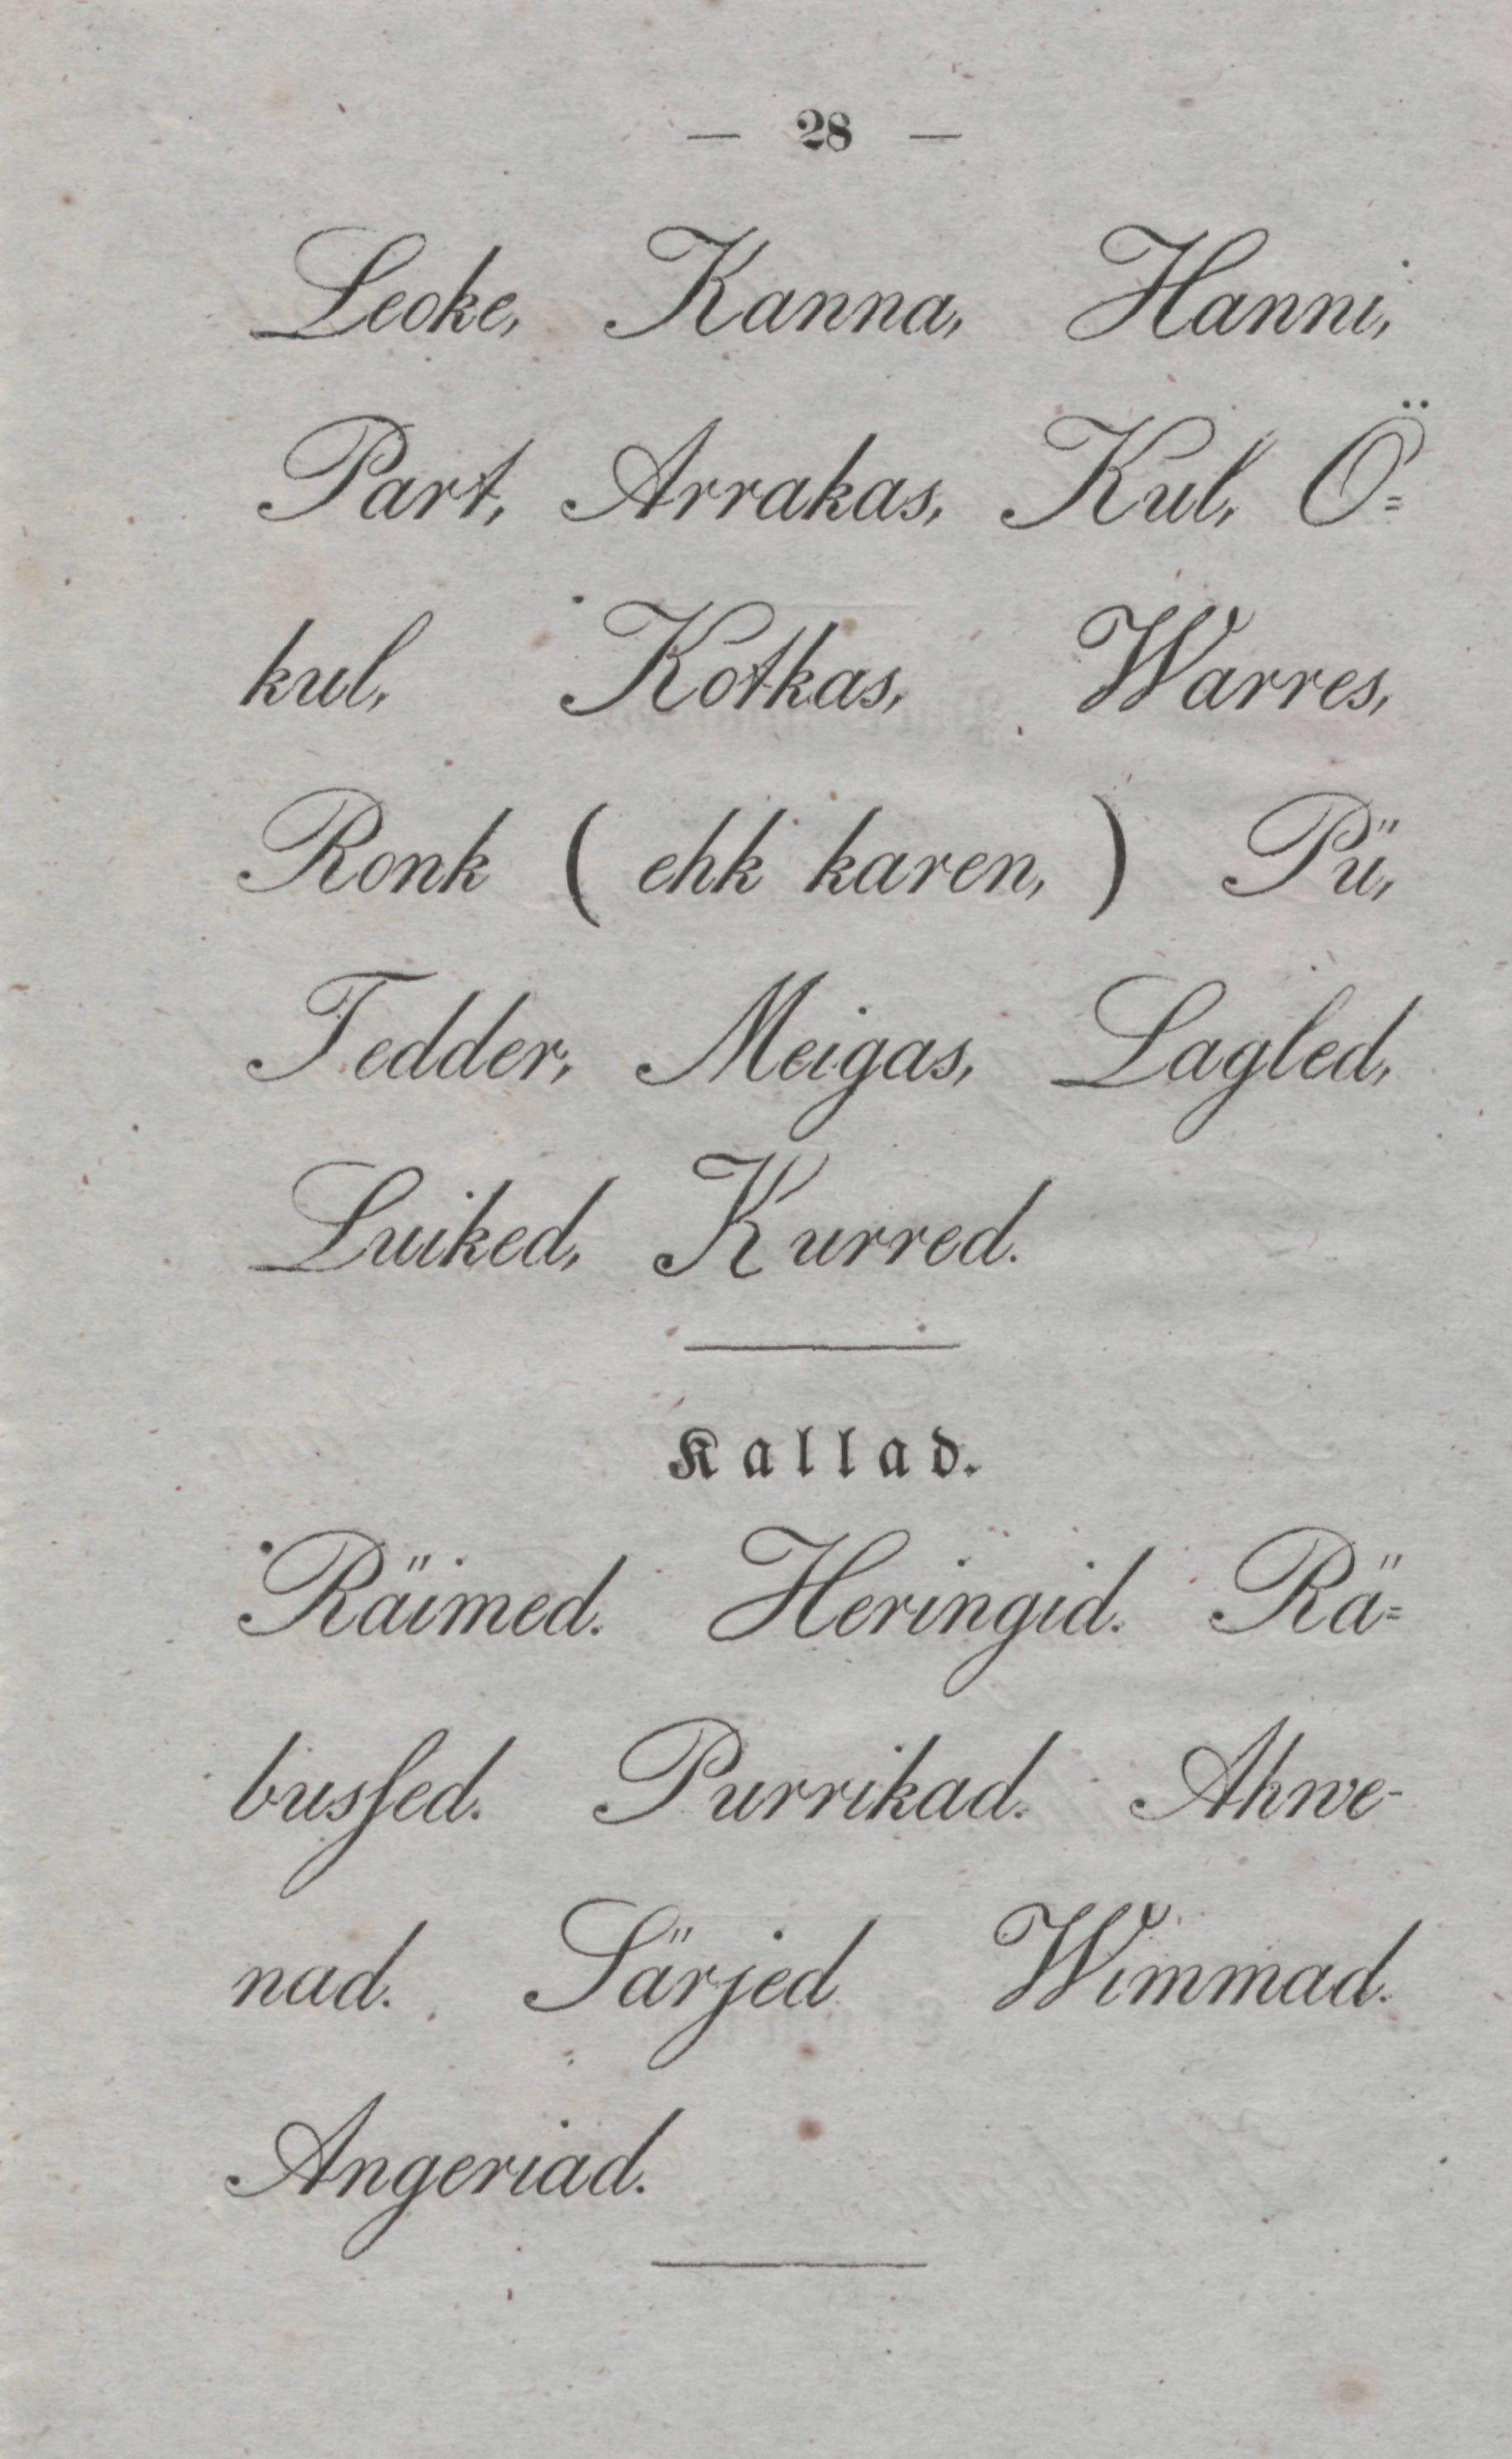 — 28 —
Leoke, Kanna, Hanni,
Part, Arrakas, Kul, Ö=
kul, Kotkas, Warres,
Ronk ( ehk karen, ) Pü,
Tedder, Meigas, Lagled,
Luiked, Kurred.
Kallad.
Räimed. Heringid. Rä=
busſed. Purrikad. Ahwe-
nad. Särjed Wimmad.
Angeriad.